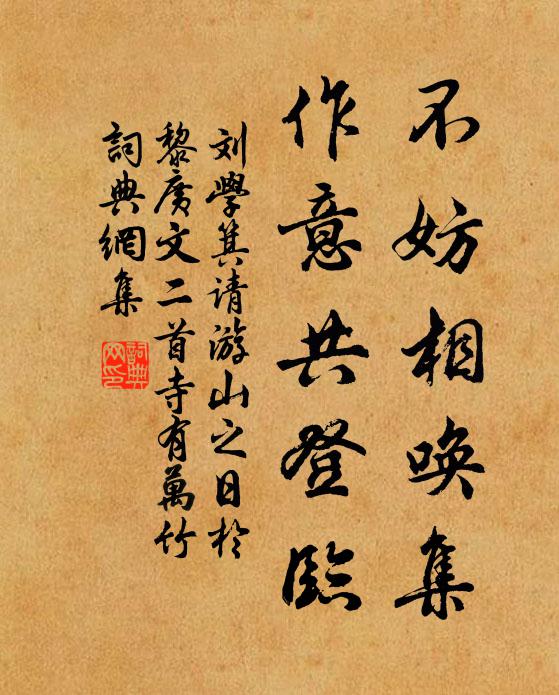 不妨相唤集
作意共登臨
刘學箕请游山之日於
黎廣文二首寺有萬竹
詞典網集
詞典
网印